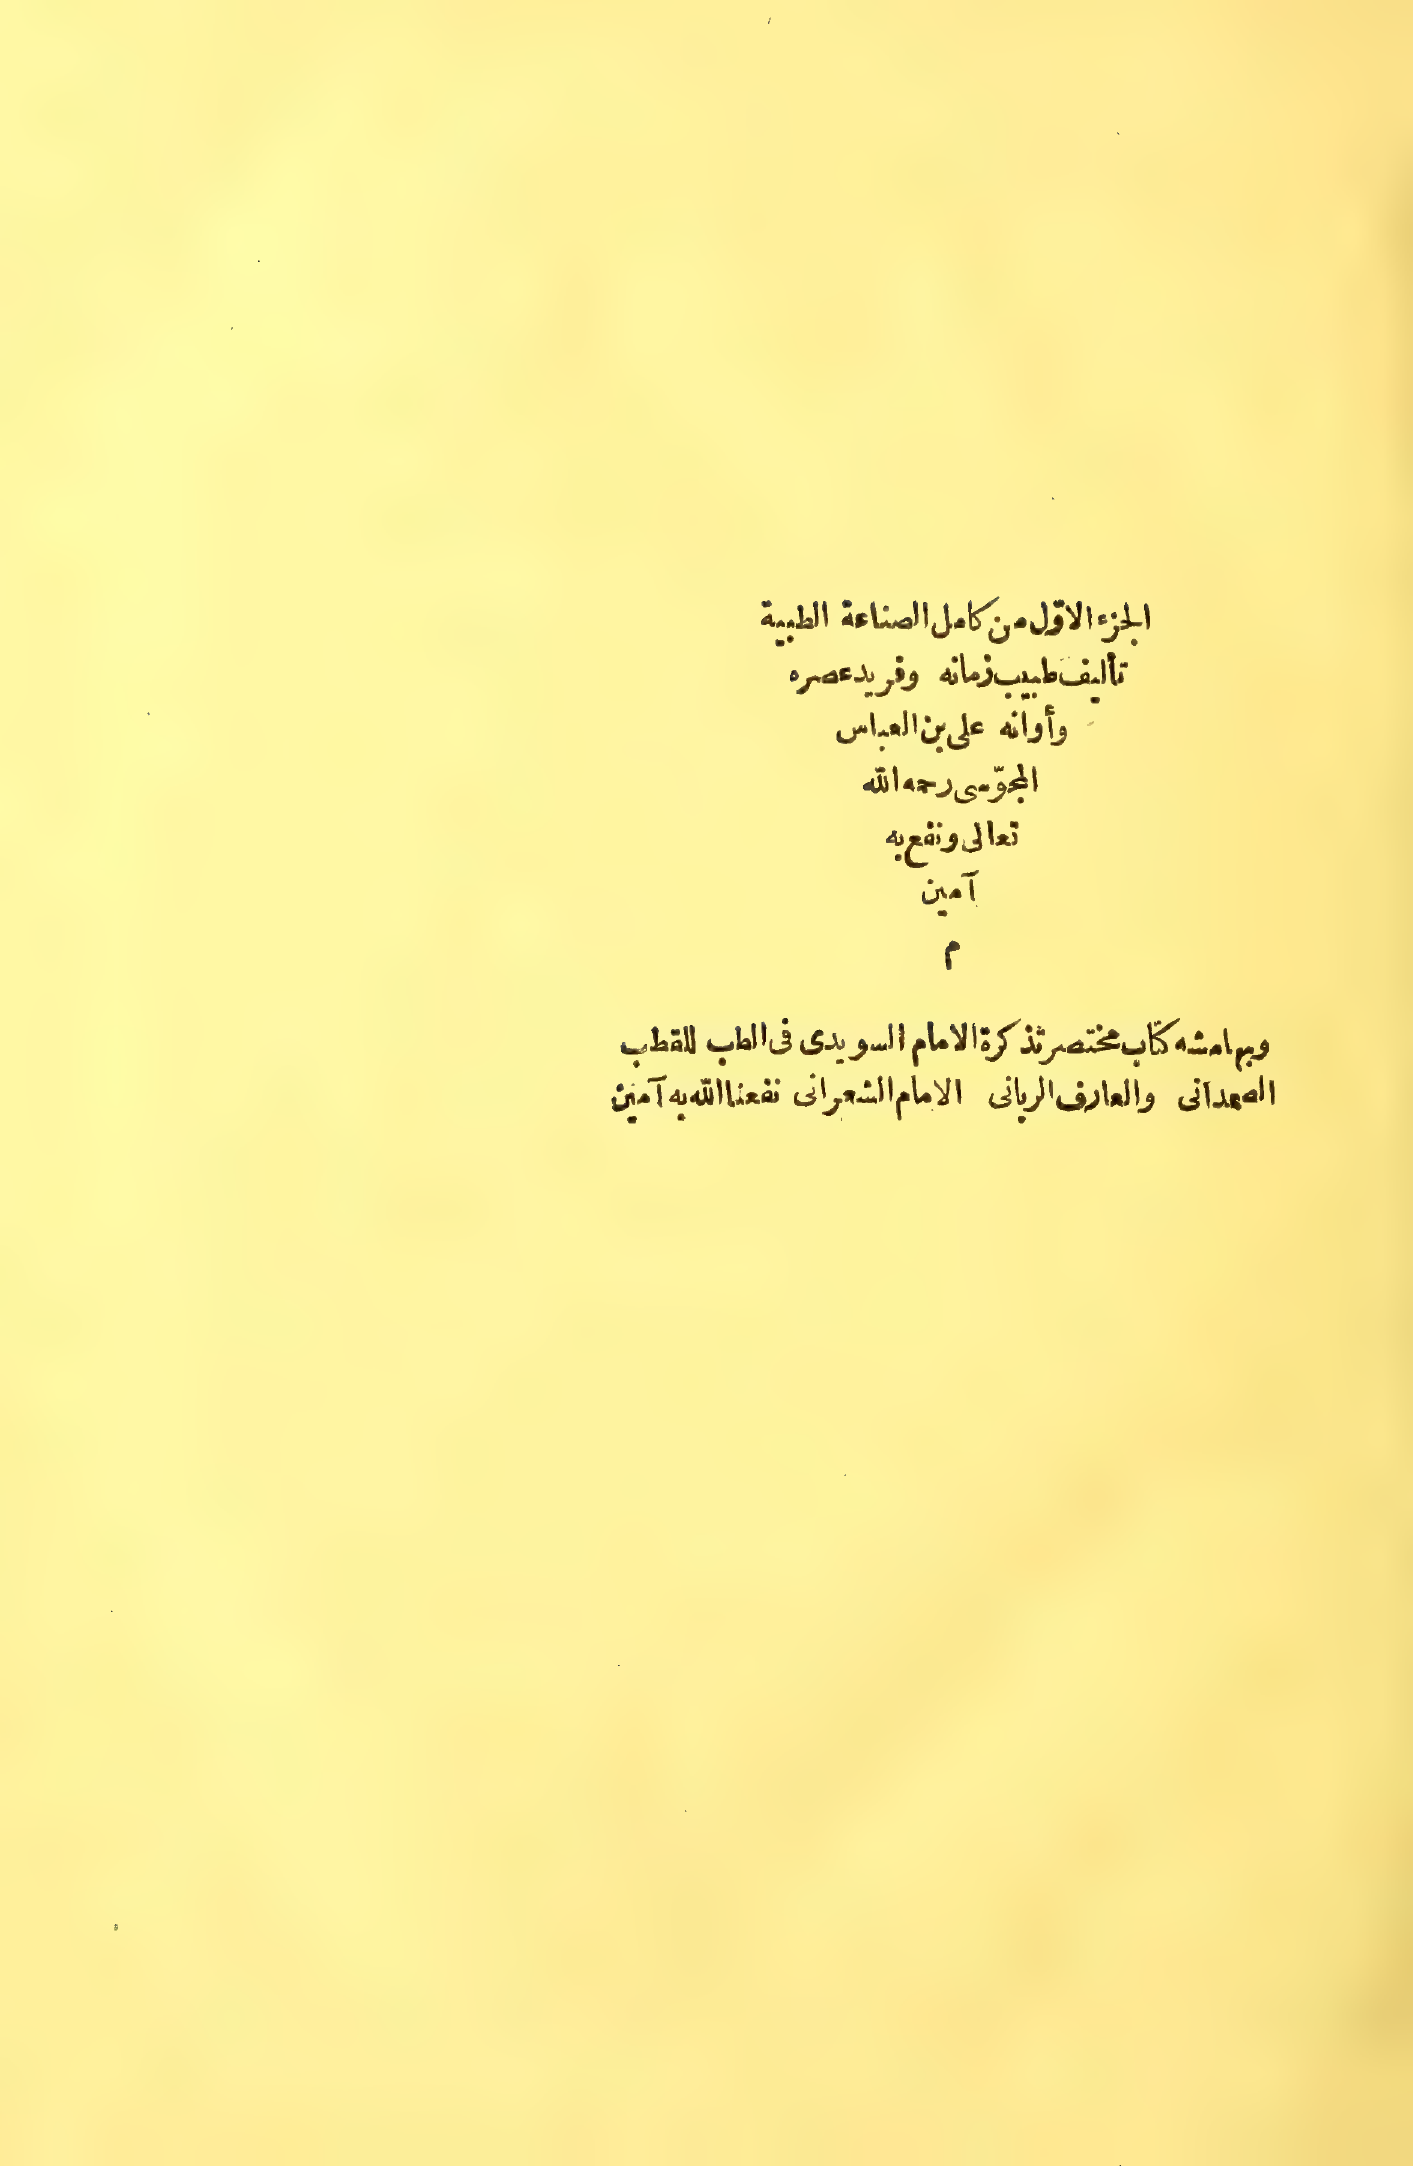 الجزء الاوّل من كامل الصناعة الطبية
تأليف طبيب زمانه وفريد عصره
وأوانه على بن العباس
المجوّسى رحمه الله
تعالى ونفع به
آمين
م
وبهامشه كتاب مختصر تذكرة الامام السويدى فى الطب للقطب
الصمدانى والعارف الربانى الامام الشعرانى نفعنا الله به آمين